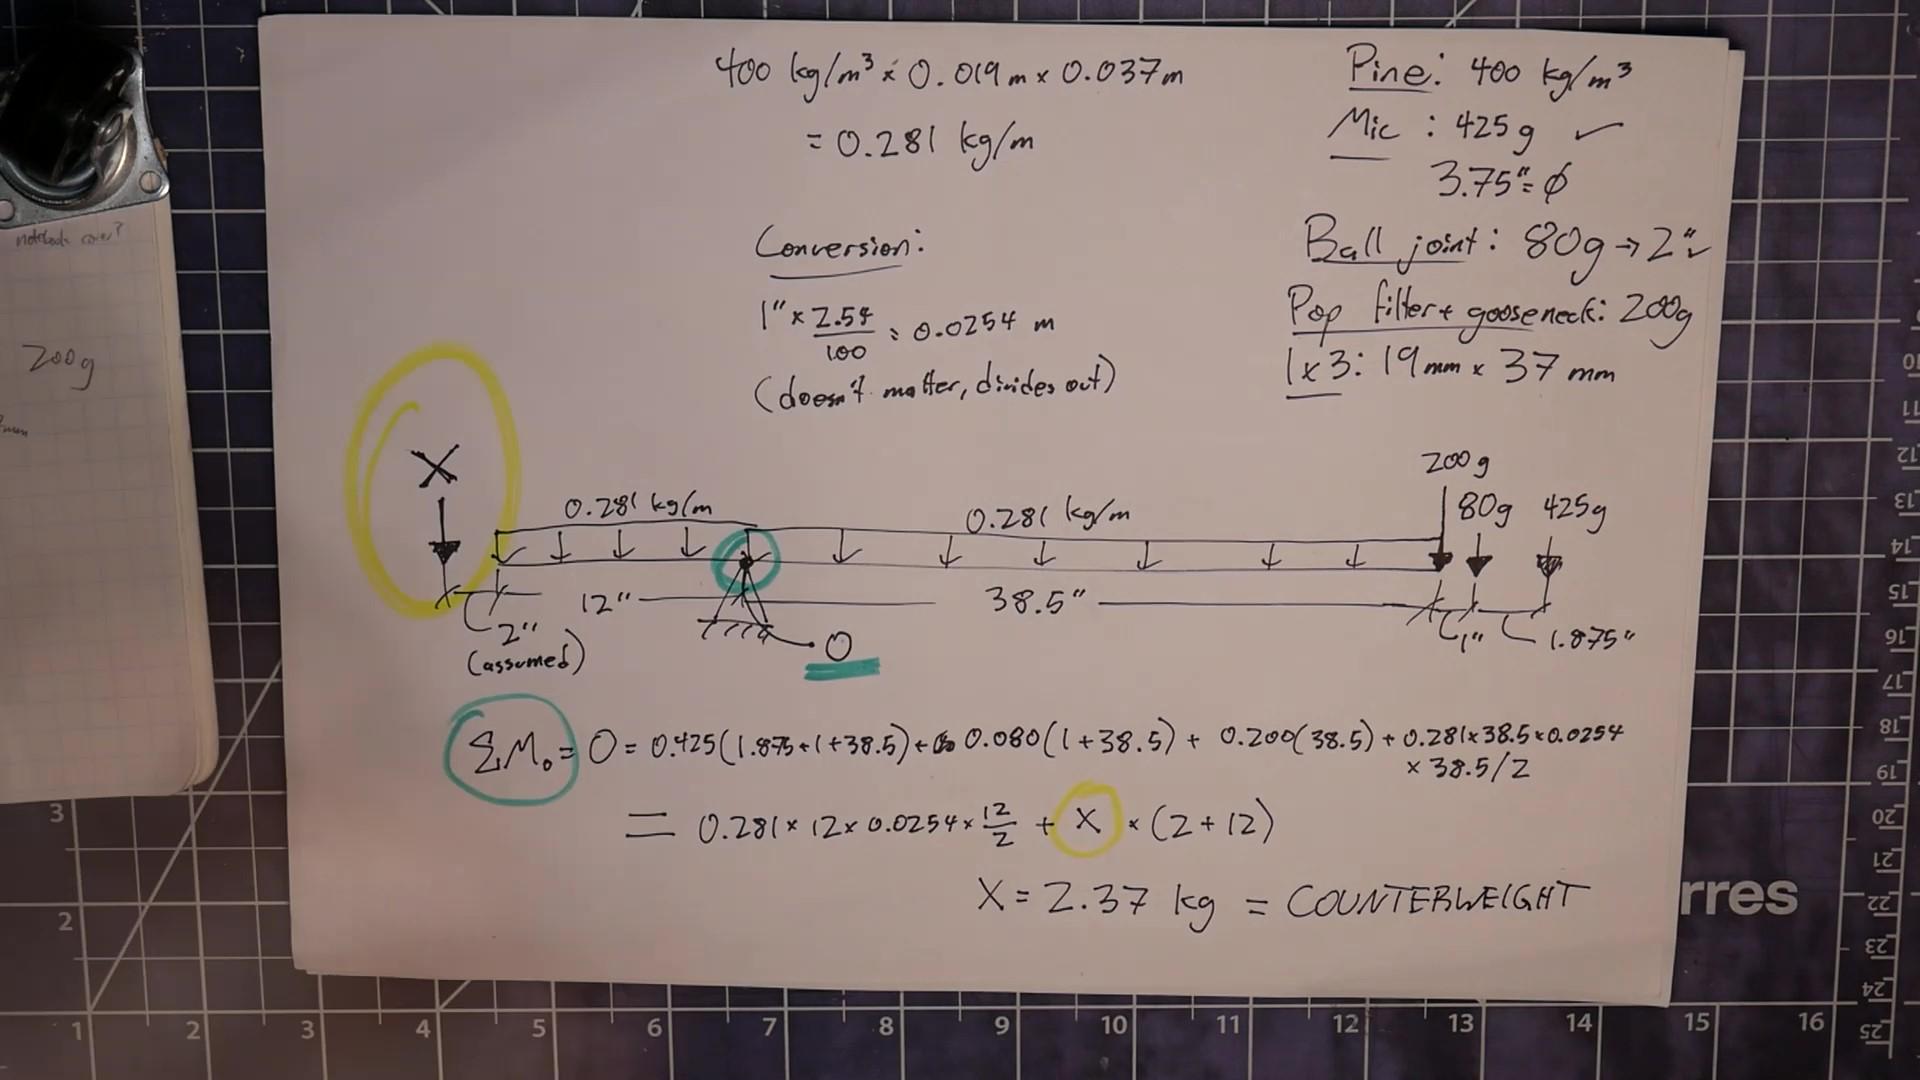 400 kg/m³ x 0.019 m x 0.037 m
= 0.281 kg/m
Pine: 400 kg/m³
Mic : 425 g ✓
3.75" = ϕ
Ball joint: 80g → 2" ✓
Pop filter + gooseneck: 200g
1x3: 19 mm x 37 mm
Conversion:
1" x 2.54/100 = 0.0254 m
(doesn't matter, divides out)
notebook cover?
200g
X
0.281 kg/m
0.281 kg/m
200g
80g
425g
12"
38.5"
2"
(assumed)
O
1"
1.875"
ΣM₀ = 0 = 0.425(1.875+1+38.5) + 0.080(1+38.5) + 0.200(38.5) + 0.281x38.5x0.0254
x 38.5/2
= 0.281 x 12 x 0.0254 x 12/2 + X x (2+12)
X = 2.37 kg = COUNTERWEIGHT
rres
1 2 3 4 5 6 7 8 9 10 11 12 13 14 15 16
3
2
10
11
12
13
14
15
16
17
18
19
20
21
22
23
24
25